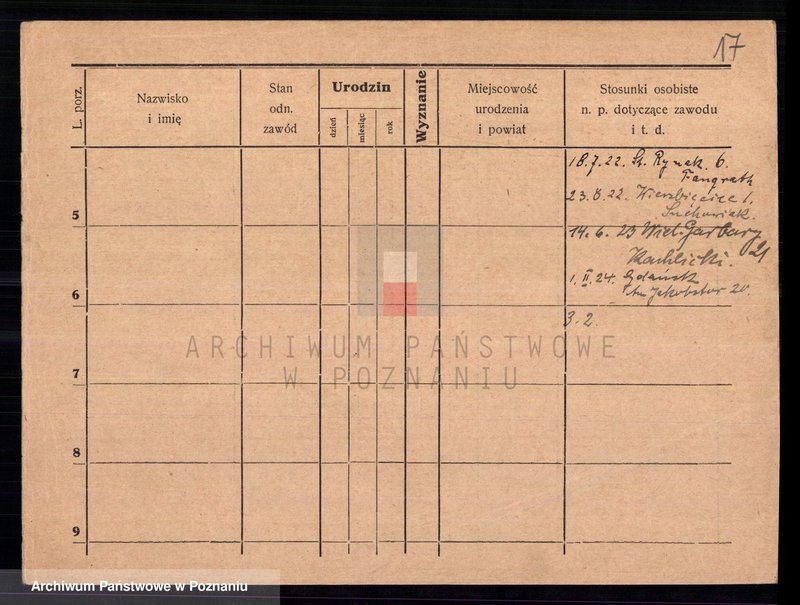 17
L. porz.
Nazwisko
i imię
Stan
odn.
zawód
Urodzin
dzień
miesiąc
rok
Wyznanie
Miejscowość
urodzenia
i powiat
Stosunki osobiste
n. p. dotyczące zawodu
i t. d.
18.7.22. St. Rynek. 6.
Fangrath
23.8.22. Wierzbięcice 1.
Suchowiak.
5
14. 6. 23 Wiel. Garbary
21
Kachlicki.
1. II. 24. Gdańsk
Am Jakobstor 20.
6
3.2.
7
8
9
ARCHIWUM PAŃSTWOWE
W POZNANIU
Archiwum Państwowe w Poznaniu